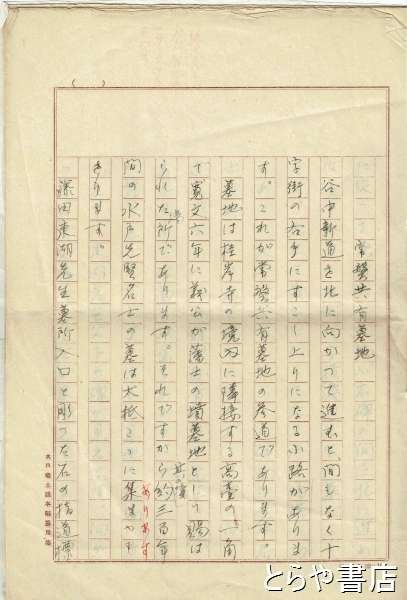 常磐共有墓地
谷中新道を北に向かつて進むと、間もなく十
字街の右手にすこし上りになる小路がありま
す。これが常磐共有墓地の参道であります。
墓地は桂岸寺の境内に隣接する高臺の一角
で寛文六年に義公が藩士の墳墓地として賜は
られた所であります。それですから約三百年
間の水戸先賢名士の墓は大抵
集まつて
あります
きります。
藤田東湖先生墓所入口と彫つた石の指道標
水戸郷土讀本編纂用箋
とらや書店